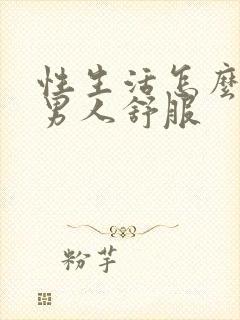 性生活怎麼
男人舒服
粉芋